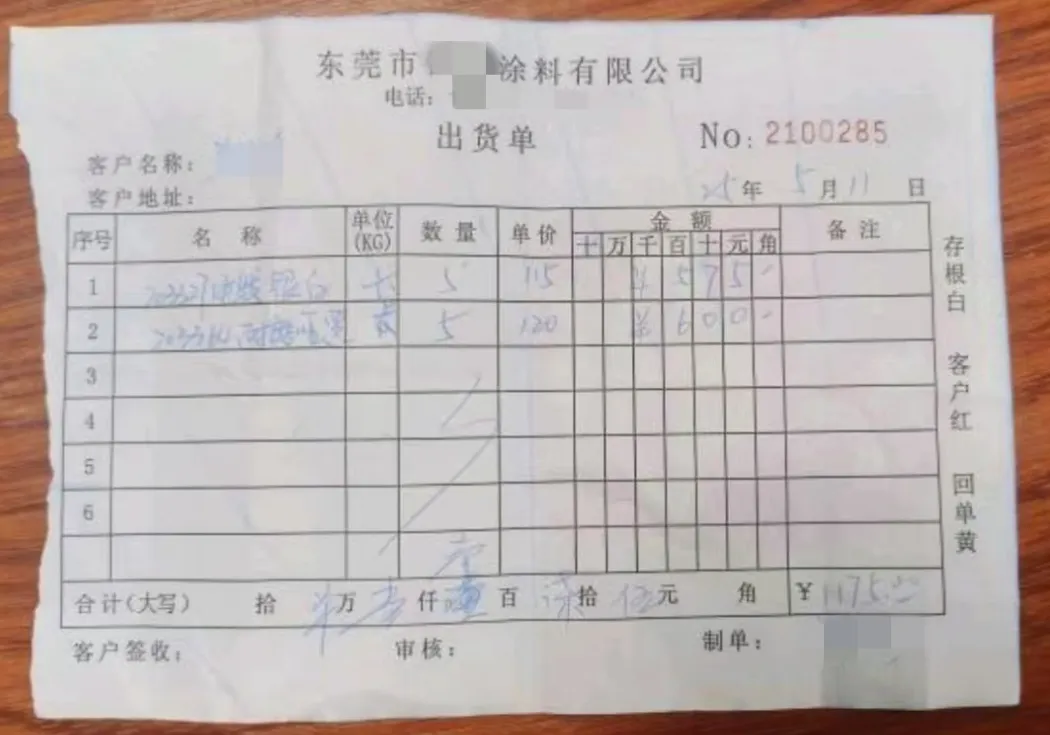 东莞市 涂料有限公司
电话：
出货单
No: 2100285
客户名称：
客户地址：
25年 5月11日
序号 名 称 单位(KG) 数量 单价 金额 备注
十 万 千 百 十 元 角
1 5 115 ¥ 5 7 5 -
2 5 120 ¥ 6 0 0 -
3
4
5
6
合计(大写) 拾 万 壹仟 壹百 柒拾 伍元 角 ¥1175.00
客户签收： 审核： 制单：
存根白 客户红 回单黄